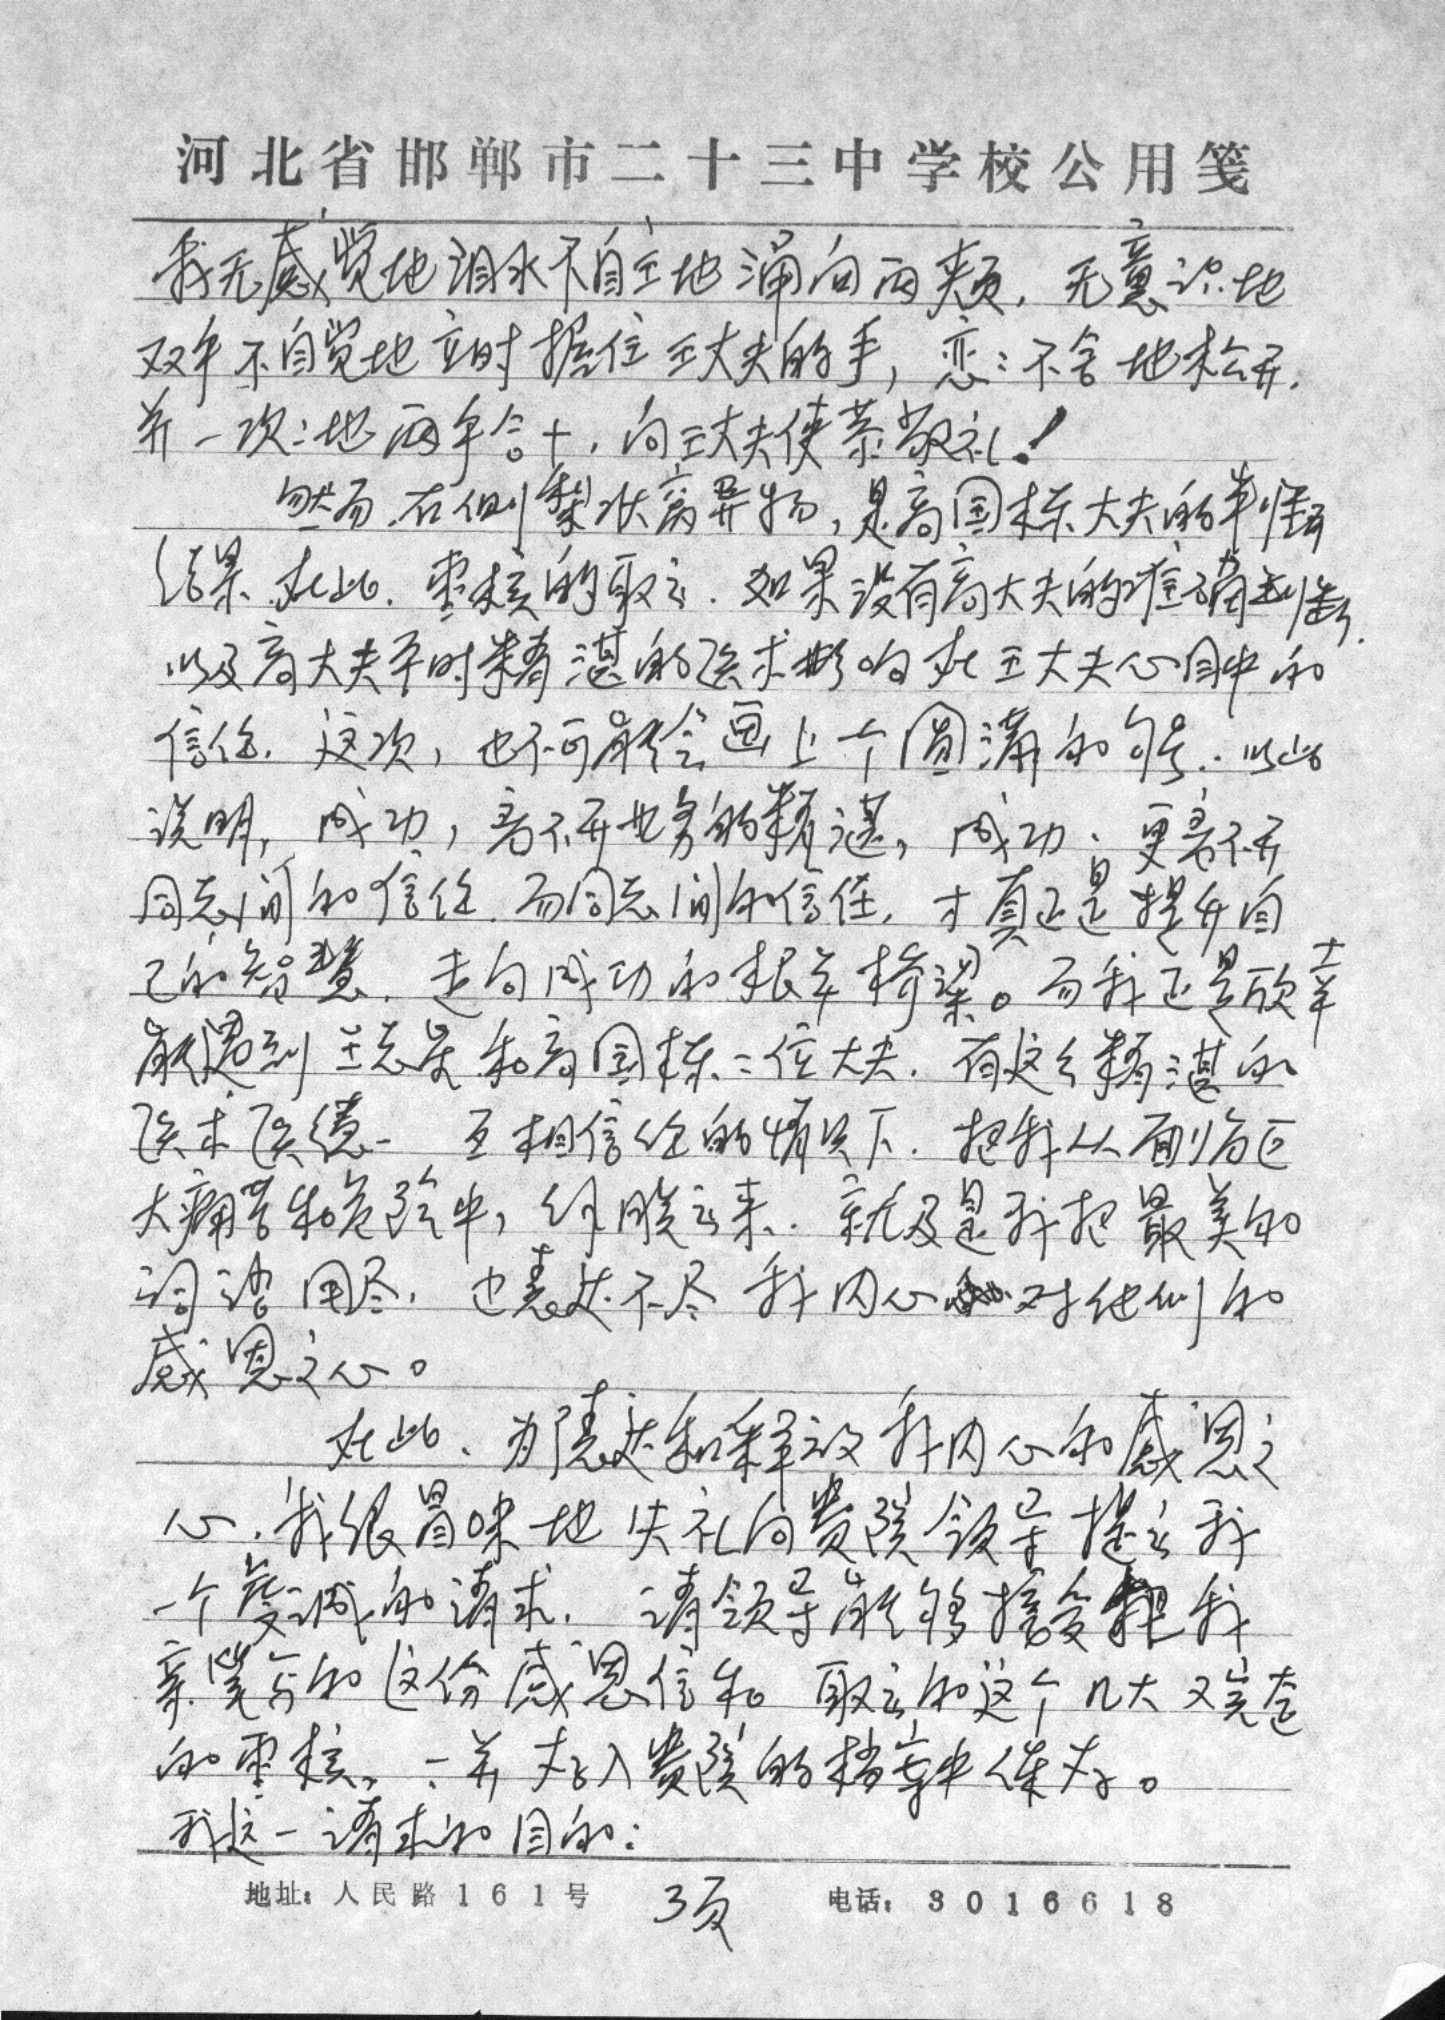 河北省邯郸市二十三中学校公用笺
我无感觉地泪水不自主地涌向两颊,无意识地
双手不自觉地立时握住王丈夫的手,恋:不舍地松开,
并一次:地两手合十,向王大夫使恭敬礼!
然而,右侧梨状窝异物,是高国栋大夫的判断
结果,在此,枣核的取出,如果没有高大夫的准确判断,
以及高大夫平时精湛的医术影响在王大夫心目中的
信任,这次,也不可能会画上个圆满的句号,以此
说明,成功,离不开业务的精湛,成功,更离不开
同志间的信任,而同志间的信任,才真正是提升自
己的智慧,走向成功的根本桥梁。而我正是欣幸
能遇到王志昊和高国栋二位大夫,有这么精湛的
医术医德 互相信任的情况下,把我从面临巨
大痛苦和危险中,解脱出来,就是我把最美的
词语用尽,也表达不尽我内心对他们的
感恩之心。
在此,为表达和释放我内心的感恩之
心,我很冒昧地失礼向贵院领导提出我
一个虔诚的请求,请领导能够接受把我
亲笔写的这份感恩信和取出的这个几大又完整
的枣核,一并存入贵院的档案中保存。
我这一请求的目的:
地址:人民路161号 3页 电话:3016618